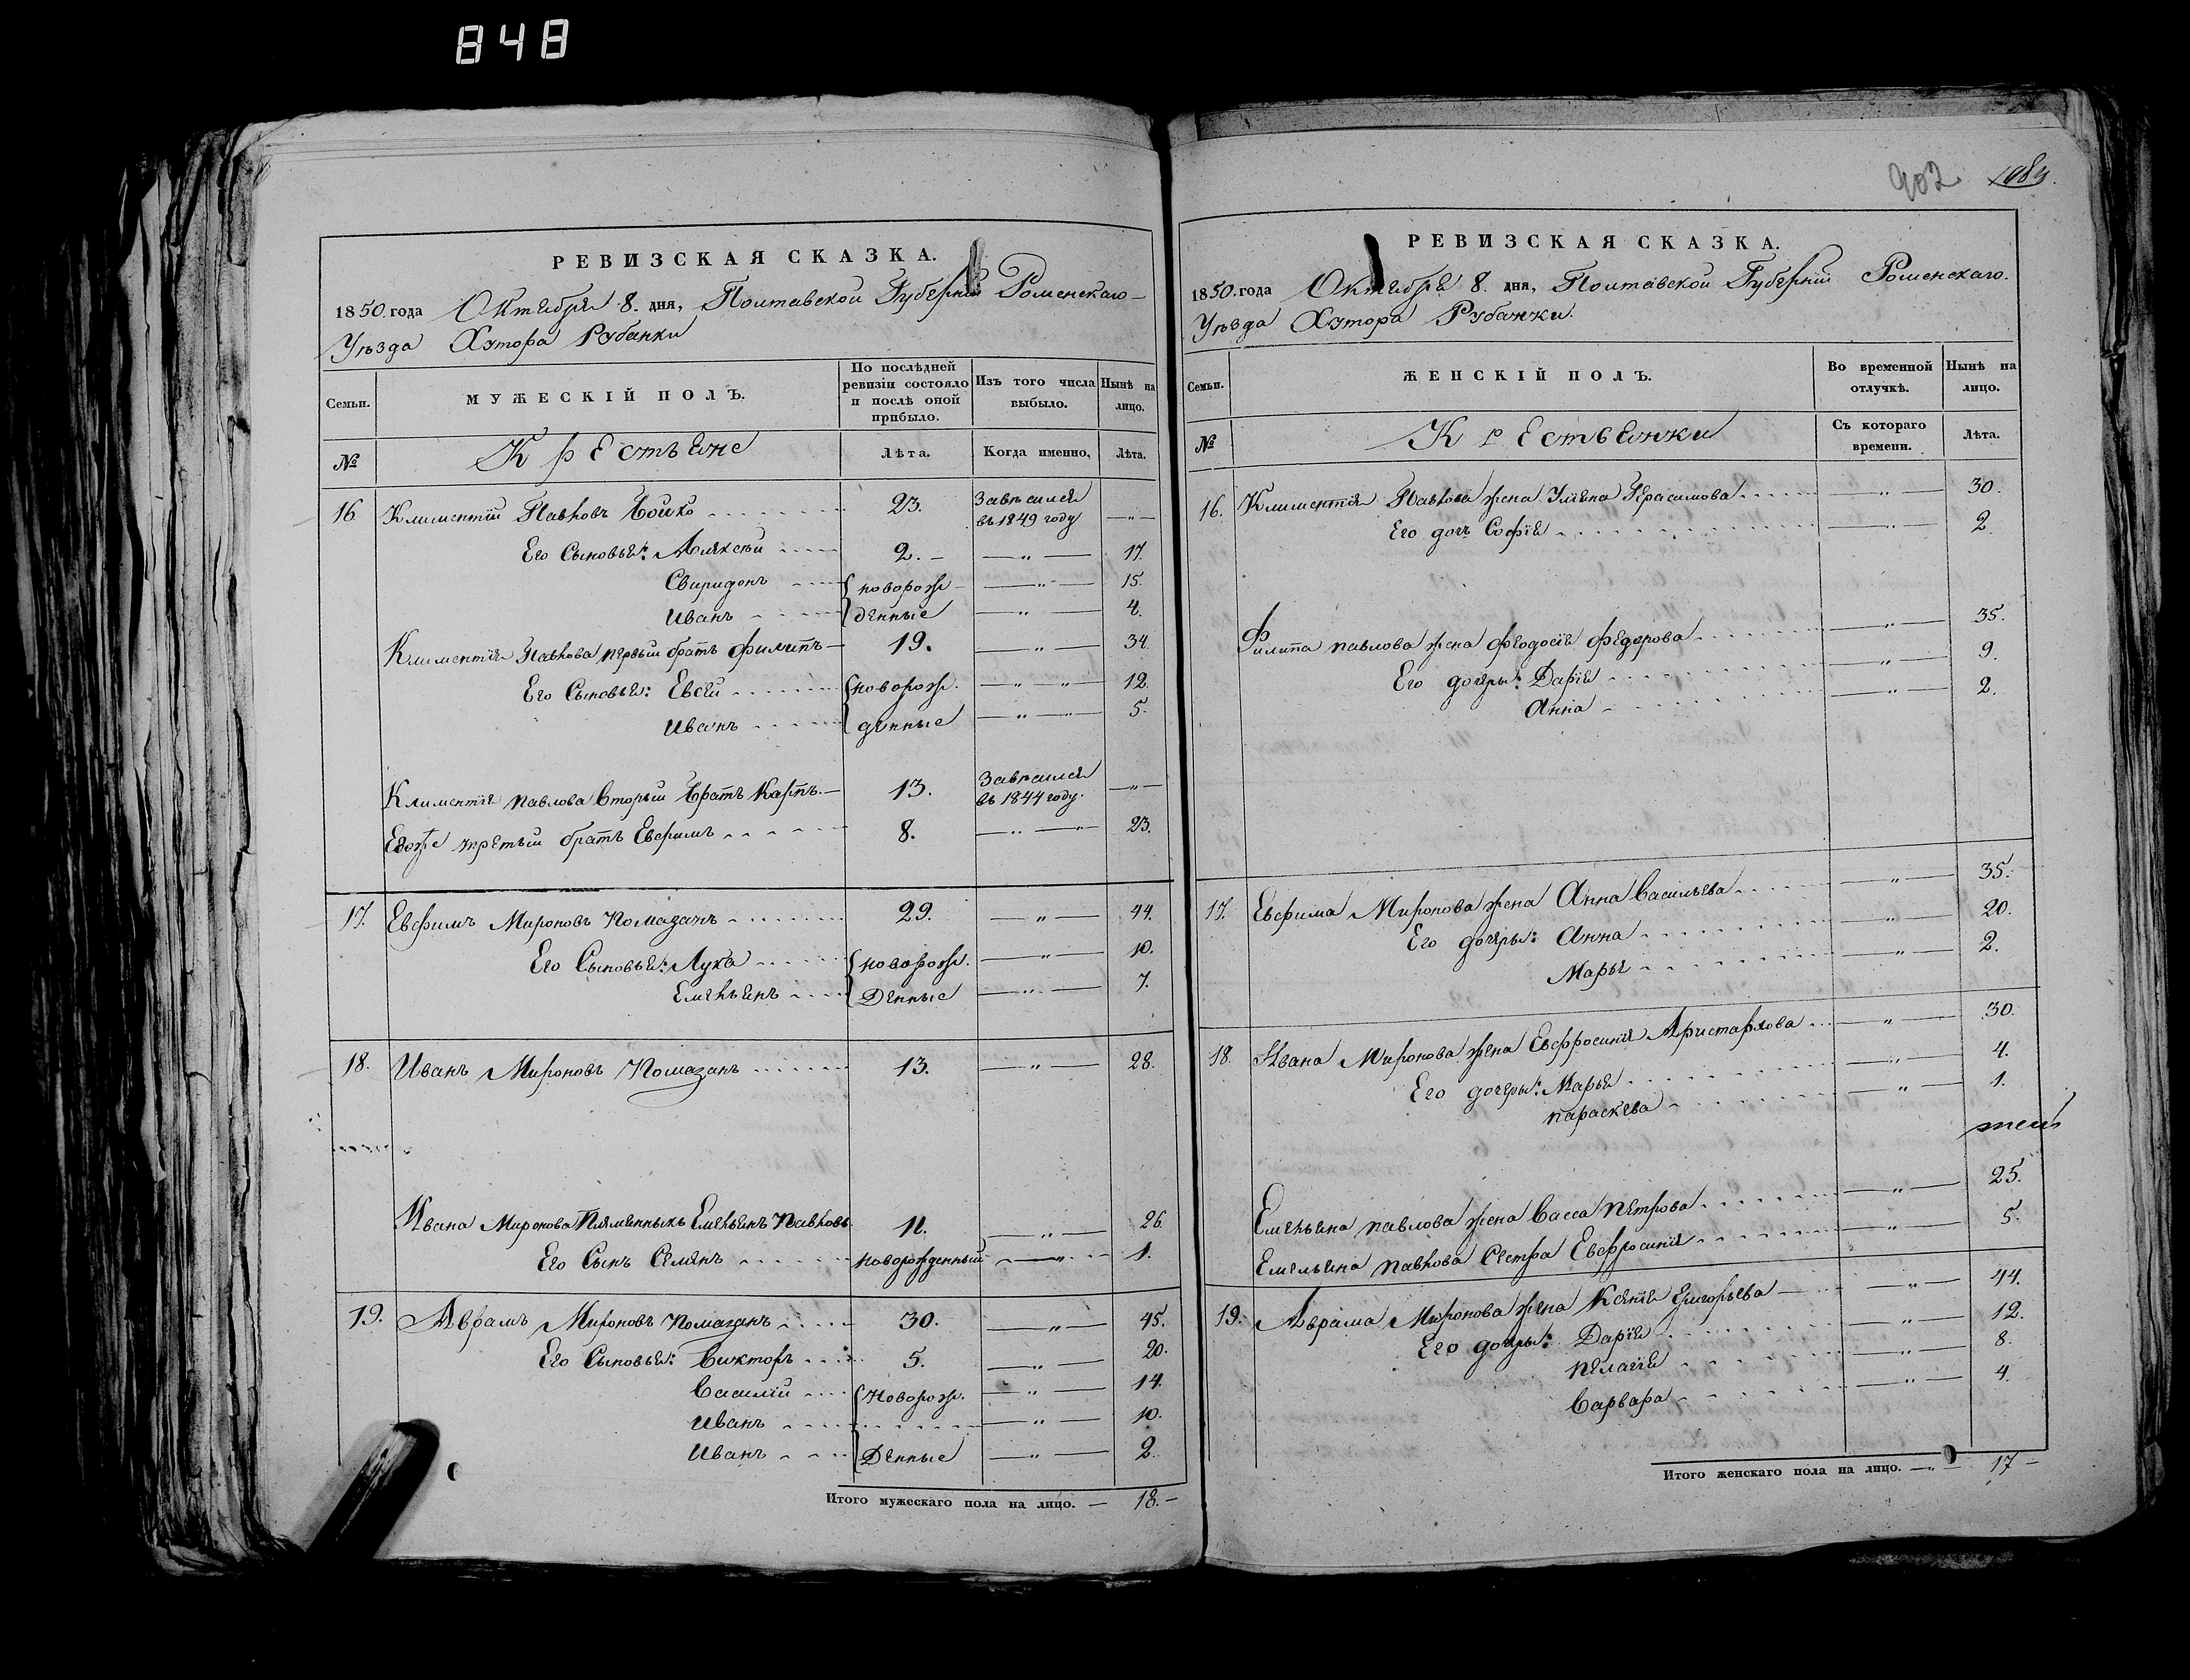 848
902 1983.
РЕВИЗСКАЯ СКАЗКА.
1850. года Октября 8. дня, Полтавской Губерніи Роменскаго
Уѣзда Хутора Рубанки
Семьи. МУЖЕСКІЙ ПОЛЪ. По послѣдней ревизіи состояло и послѣ оной прибыло. Изъ того числа выбыло. Нынѣ на лицо.
№ Крестьяне Лѣта. Когда именно, Лѣта.
16 Климентій Павловъ Бойко 23. Завѣсился въ 1849 году — „ —
Его Сыновья: Алексѣй 2. — „ — 17.
Свиридонъ новорож — „ — 15.
Иванъ денные — „ — 4.
Климентія Павлова первый братъ Филипъ 19. — „ — 34.
Его Сыновья: Евсей новорож. — „ — „ — 12.
Иванъ денные — „ — 5.
Климентія Павлова Вторый братъ Карпъ. 13. Завѣсился въ 1844 году. — „ —
Егоже третій братъ Евфимъ 8. — „ — „ 23.
17. Евфимъ Мироновъ Помазанъ 29. — „ — 44.
Его Сыновья: Лука новорож. — „ — 10.
Емельянъ Денные — „ — 7.
18. Иванъ Мироновъ Помазанъ 13. — „ — 28.
Ивана Миронова Племянникъ Емельянъ Павловъ 11. — „ — 26.
Его Сынъ Семенъ новорожденный — „ — 1.
19. Аврамъ Мироновъ Помазанъ 30. — „ — 45.
Его Сыновья: Викторъ 5. — „ — 20.
Василій Новорож. — „ — 14.
Иванъ — „ — 10.
Иванъ Денные — „ — 2.
Итого мужескаго пола на лицо. — 18. —
РЕВИЗСКАЯ СКАЗКА.
1850. года Октября 8. дня, Полтавской Губерніи Роменскаго.
Уѣзда Хутора Рубанки.
Семьи. ЖЕНСКІЙ ПОЛЪ. Во временной отлучкѣ. Нынѣ на лицо.
№ Крестьянки Съ котораго времени. Лѣта.
16. Климентія Павлова жена Уліяна Герасимова — „ — 30.
Его дочь Софія — „ — 2.
Филипа Павлова жена Феодосія Федорова — „ — 35.
Его дочеры: Дарія — „ — 9.
Анна — „ — 2.
17. Евфима Миронова жена Анна Васильева — „ — 35.
Его дочеры: Анна — „ — 20.
Марья — „ — 2.
18. Ивана Миронова жена Евфросинія Аристархова — „ — 30.
Его дочеры: Марья — „ — 4.
Параскева — „ — 1.
Емельяна Павлова жена Васса Петрова — „ — 25.
Емельяна Павлова Сестра Евфросинія — „ — 5.
19. Аврама Миронова жена Ксенія Григорьева — „ — 44.
Его дочеры: Дарія — „ — 12.
Пелагія — „ — 8.
Варвара — „ — 4.
Итого женскаго пола на лицо. — „ — 17 —